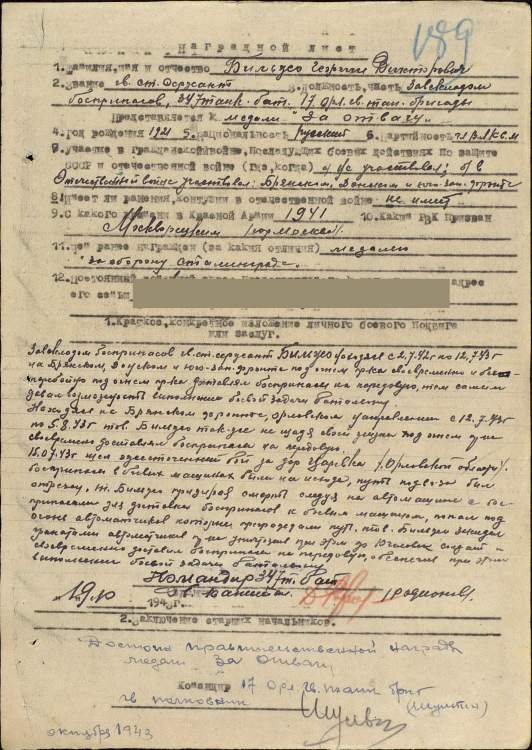 189
НАГРАДНОЙ ЛИСТ
1. Фамилия, имя и отчество Бильдсо Георгий Викторович
2. Звание гв. ст. сержант 3. Должность, часть Завскладом
боеприпасов, 347 танк. бат. 17 орл. гв. тан. бригады
Представляется к медали "За отвагу"
4. Год рождения 1921 5. Национальность русский 6. Партийность чл ВЛКСМ
7. Участие в Гражданской войне, последующих боевых действиях по защите
СССР и отечественной войне (где, когда) не участвовал; в
Отечественной войне участвовал: Брянском, Донском и юго-зап. фронте
8. Имеет ли ранения, контузии в отечественной войне не имеет
9. С какого времени в Красной Армии 1941 10. Каким РВК призван
Москворецким г. Москвы
11. Чем ранее награжден (за какия отличия) медалью
"за оборону Сталинграда"
12. Постоянный адрес
его семьи
1. Краткое, конкретное изложение личного боевого подвига
или заслуг.
Завскладом боеприпасов гв. ст. сержант Бильдсо с 2.7.42г по 12.7.43г
на Брянском, Донском и юго-зап. фронте под огнем врага своевременно и бес-
перебойно под огнем врага доставлял боеприпасы на передовую, тем самым
давал возможность выполнению боевой задачи батальону.
Находясь на Брянском фронте, орловском направлении с 12.7.43г
по 5.8.43г тов. Бильдсо так-же не щадя своей жизни под огнем
своевременно доставлял боеприпасы на передовую.
15.07.43г шел ожесточенный бой за дер Царевка (Орловской области).
боеприпасы в боевых машинах были на исходе, путь подвоза был
отрезан, т. Бильдсо презирая смерть следуя на автомашине с бо-
припасами для доставки боеприпасов к боевым машинам, попал под
огонь автоматчиков которые преграждали путь. тов. Бильдсо
гранатами автоматчиков уничтожил при этом до 10 человек солдат и
своевременно доставил боеприпасы на передовую, обеспечив при этом
выполнение боевой задачи батальону.
Командир 347 т. бат
гв. капитан (Родионов)
19.10 1943г.
2. Заключение старших начальников.
Достоин правительственной награды
медали За отвагу
Командир 17 орл. гв. танк бриг
гв полковник (Шульгин)
октября 1943